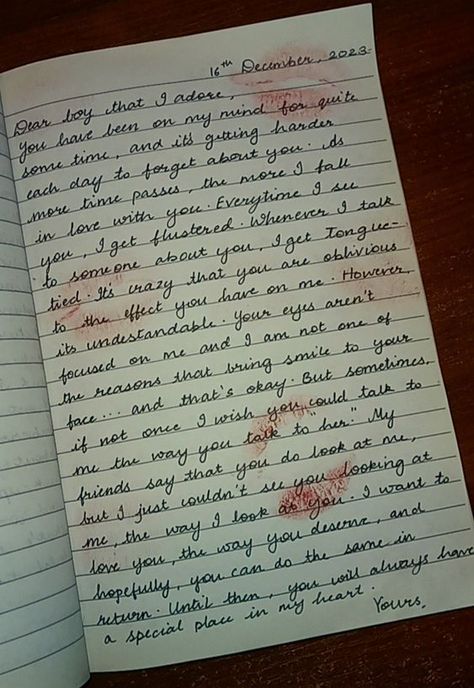 16th December, 2023
Dear boy that I adore,
You have been on my mind for quite
some time, and its getting harder
each day to forget about you. As
more time passes, the more I fall
in love with you. Everytime I see
you, I get flustered. Whenever I talk
to someone about you, I get tongue-
tied. It's crazy that you are oblivious
to the effect you have on me. However,
its undestandable. Your eyes aren't
focused on me and I am not one of
the reasons that bring smile to your
face... and that's okay. But sometimes,
if not once I wish you could talk to
me the way you talk to "her." My
friends say that you do look at me,
but I just couldn't see you looking at
me, the way I look at you. I want to
love you, the way you deserve, and
hopefully, you can do the same in
return. Until then, you will always have
a special place in my heart.
Yours,